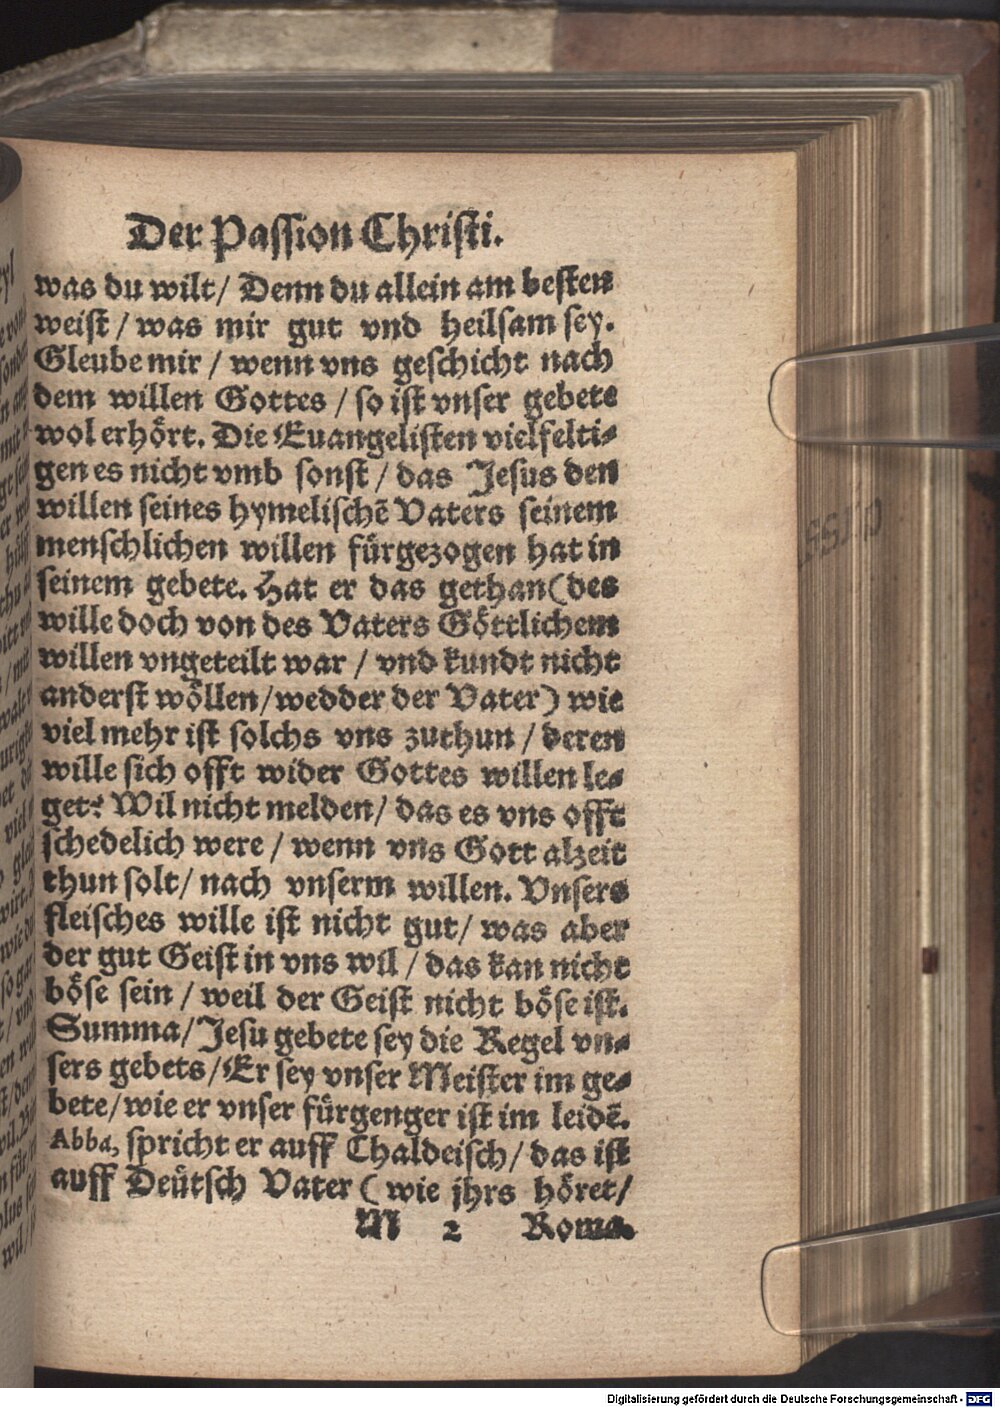 Der Passion Christi.
was du wilt/ Denn du allein am besten
weist / was mir gut vnd heilsam sey.
Gleube mir / wenn vns geschicht nach
dem willen Gottes / so ist vnser gebete
wol erhört. Die Euangelisten vielfelti⸗
gen es nicht vmb sonst / das Jesus den
willen seines hymelischē Vaters seinem
menschlichen willen fürgezogen hat in
seinem gebete. Hat er das gethan (des
wille doch von des Vaters Göttlichem
willen vngeteilt war / vnd kundt nicht
anderst wöllen/ wedder der Vater) wie
viel mehr ist solchs vns zuthun / deren
wille sich offt wider Gottes willen le⸗
get? Wil nicht melden/ das es vns offt
schedelich were / wenn vns Gott alzeit
thun solt/ nach vnserm willen. Vnsers
fleisches wille ist nicht gut/ was aber
der gut Geist in vns wil / das kan nicht
böse sein / weil der Geist nicht böse ist.
Summa/ Jesu gebete sey die Regel vn⸗
sers gebets/ Er sey vnser Meister im ge⸗
bete/ wie er vnser fürgenger ist im leidē.
Abba, spricht er auff Chaldeisch/ das ist
auff Deütsch Vater ( wie jhrs höret/
M 2 Roma.
Digitalisierung gefördert durch die Deutsche Forschungsgemeinschaft - DFG